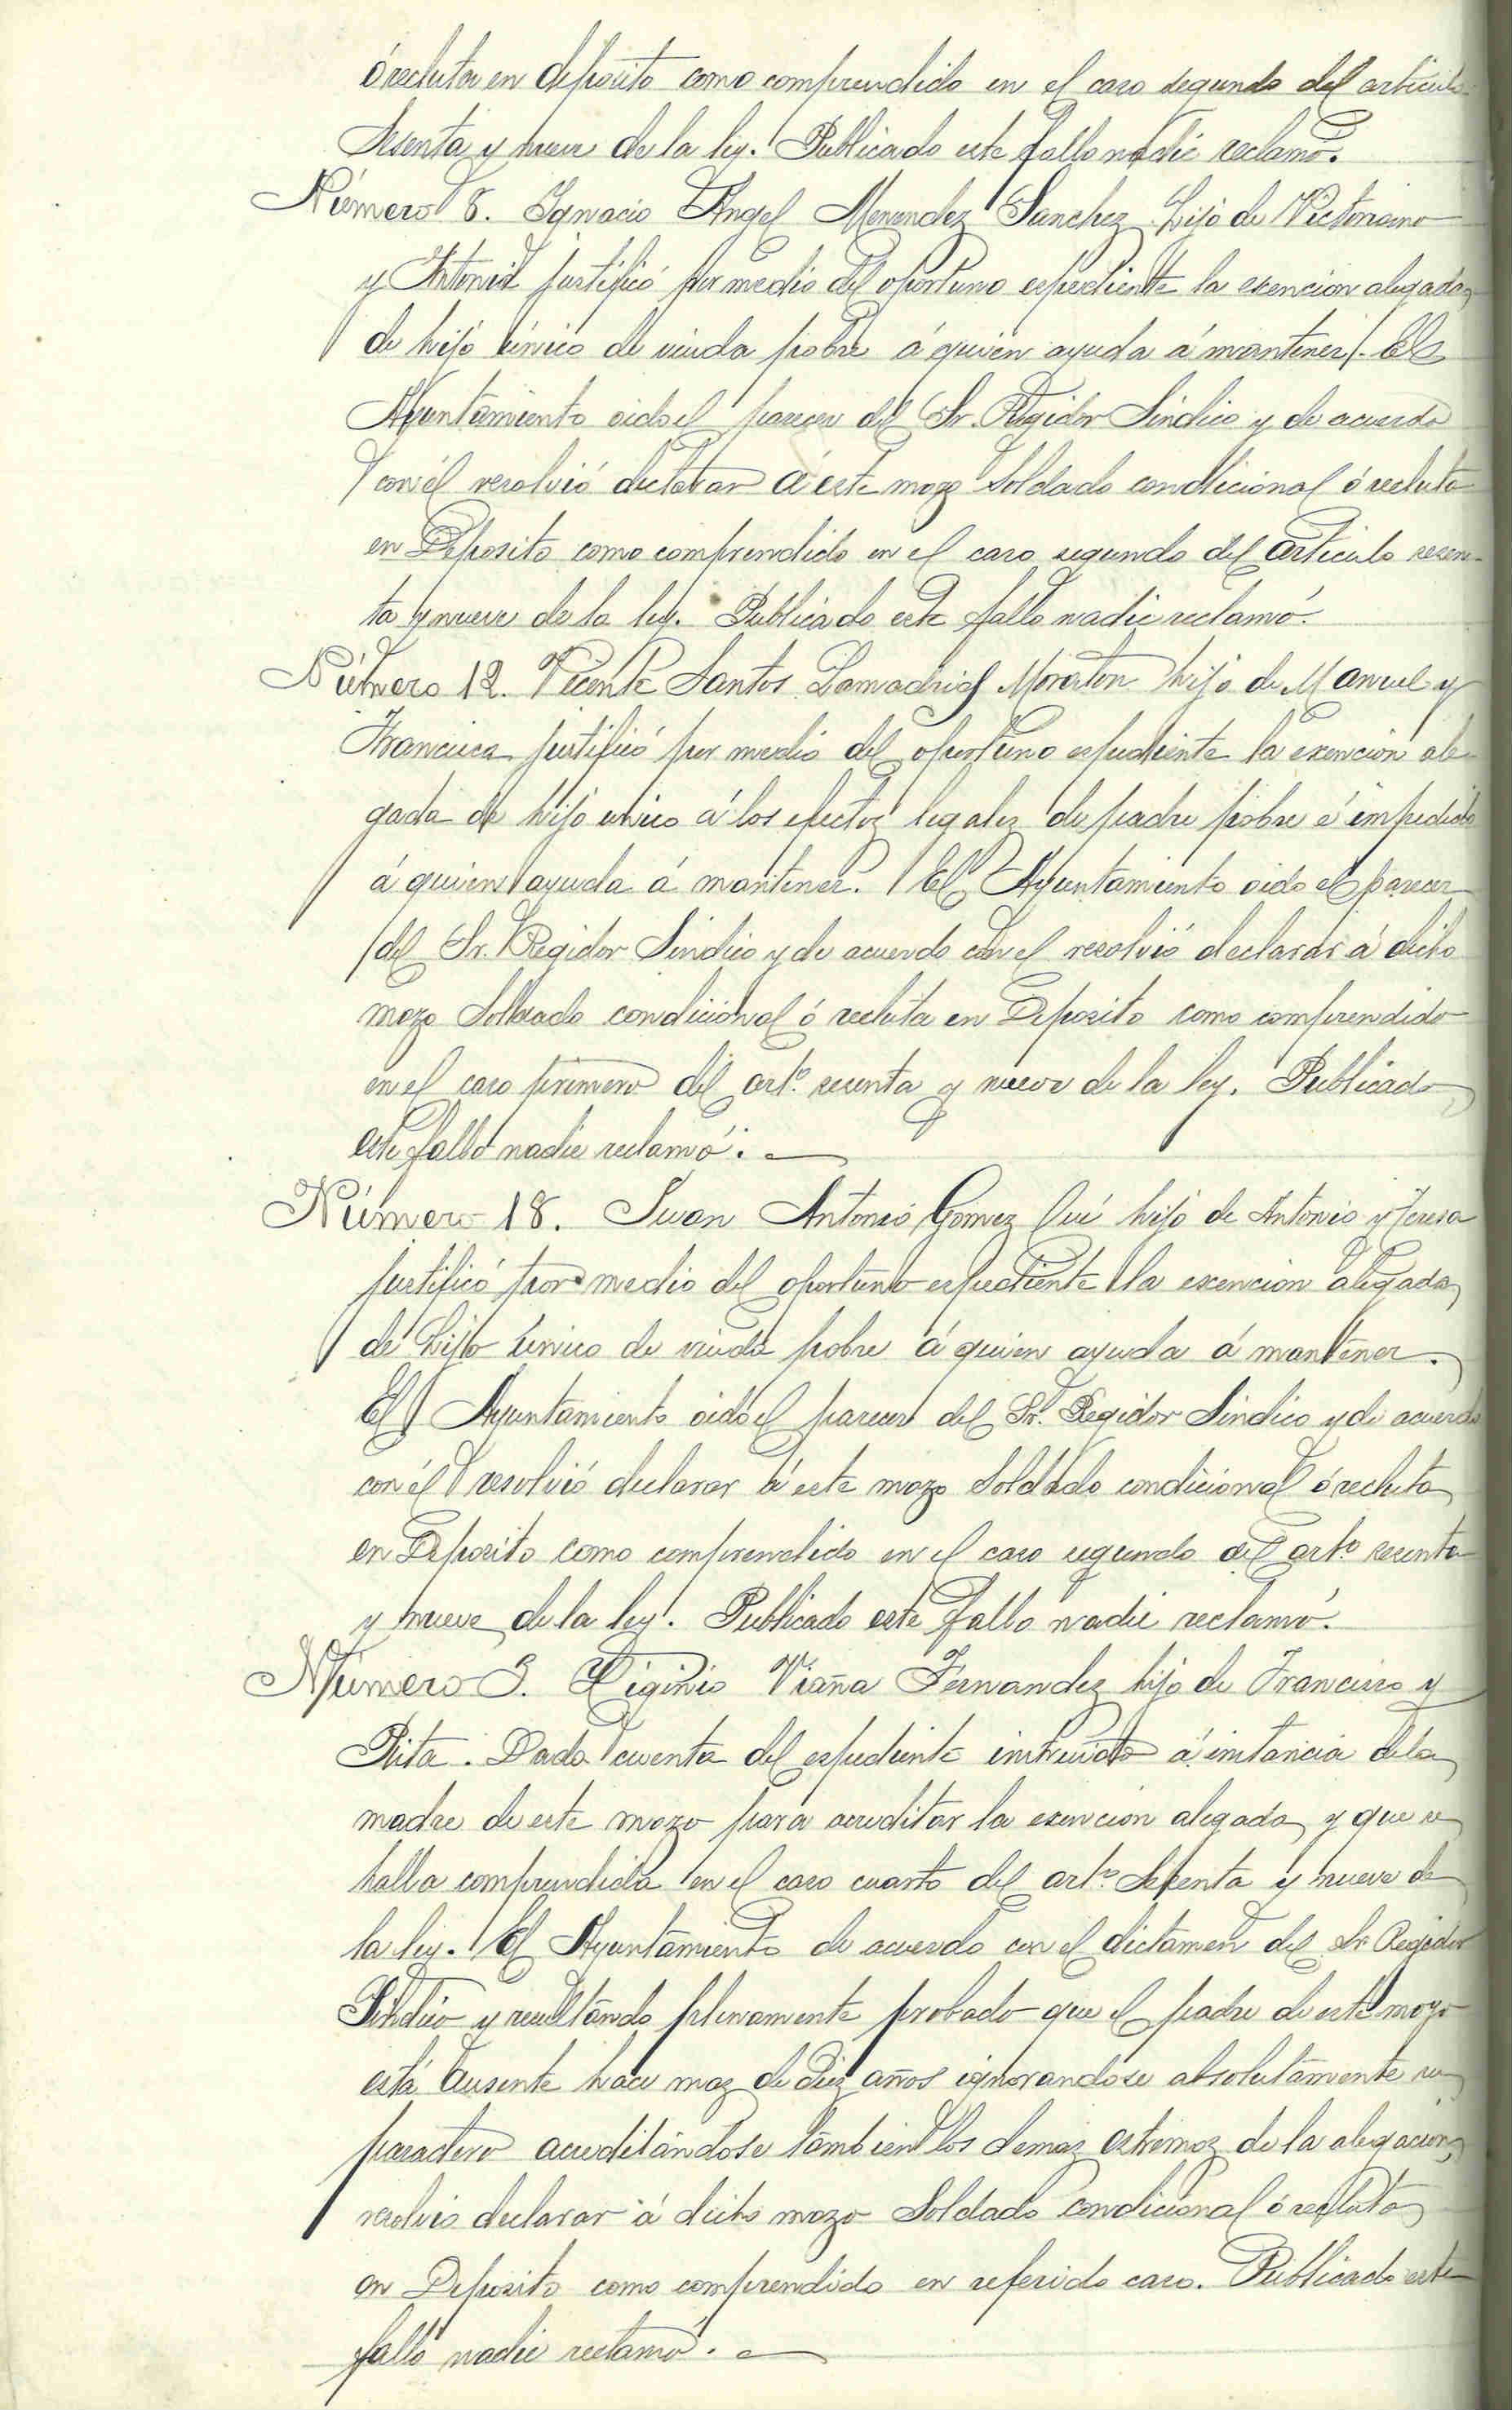 ó recluta en depósito como comprendido en el caso segundo del artículo
Sesenta y nueve de la ley. Publicado este fallo nadie reclamó.
Número 8. Ignacio Angel Menendez Sanchez hijo de Victoriano
y Antonia justificó por medio del oportuno espediente la exencion alegada
de hijo único de viuda pobre á quien ayuda á mantener. El
Ayuntamiento oido el parecer del Sr. Regidor Síndico y de acuerdo
con él resolvió declarar á este mozo Soldado condicional ó recluta
en Deposito como comprendido en el caso segundo del Artículo sesen-
ta y nueve de la ley. Publicado este fallo nadie reclamó.
Número 12. Vicente Santos Lamadrid Moraton hijo de Manuel y
Francisca justificó por medio del oportuno espediente la exencion ale-
gada de hijo unico á los efectos legales de padre pobre é impedido
á quien ayuda á mantener. El Ayuntamiento oido el parecer
del Sr. Regidor Síndico y de acuerdo con el resolvió declarar á dicho
mozo Soldado condicional ó recluta en Deposito como comprendido
en el caso primero del artº. sesenta y nueve de la ley. Publicado
este fallo nadie reclamó.
Número 18. Juan Antonio Gomez hijo de Antonio y Teresa
justificó por medio del oportuno espediente la exencion alegada
de hijo único de viuda pobre á quien ayuda á mantener.
El Ayuntamiento oido el parecer del Sr. Regidor Síndico y de acuerdo
con él resolvió declarar á este mozo Soldado condicional ó recluta
en Deposito como comprendido en el caso segundo del artº sesenta
y nueve de la ley. Publicado este fallo nadie reclamó.
Número 3. Higinio Viaña Fernandez hijo de Francisco y
Rita. Dada cuenta del espediente instruido á instancia de la
madre de este mozo para acreditar la exencion alegada y que se
halla comprendida en el caso cuarto del artº. Sesenta y nueve de
la ley. El Ayuntamiento de acuerdo con el dictamen del Sr Regidor
Síndico y resultando plenamente probado que el padre de este mozo
está ausente hace mas de diez años ignorandose absolutamente su
paradero acreditándose tambien los demas estremos de la alegacion,
resolvió declarar á dicho mozo Soldado condicional ó recluta
en Deposito como comprendido en referido caso. Publicado este
fallo nadie reclamó.